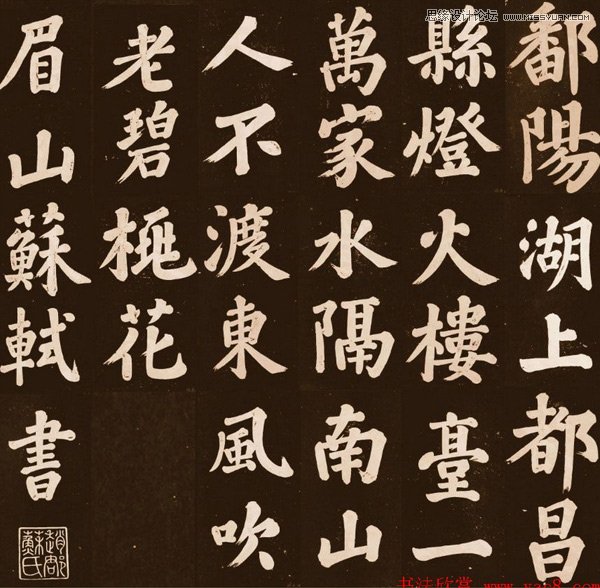 思缘设计论坛 WWW.MISSYUAN.COM
鄱陽湖上都昌
縣燈火樓臺一
萬家水隔南山
人不渡東風吹
老碧桃花
眉山蘇軾書
趙郡蘇氏
书法欣赏 www.yac8.com